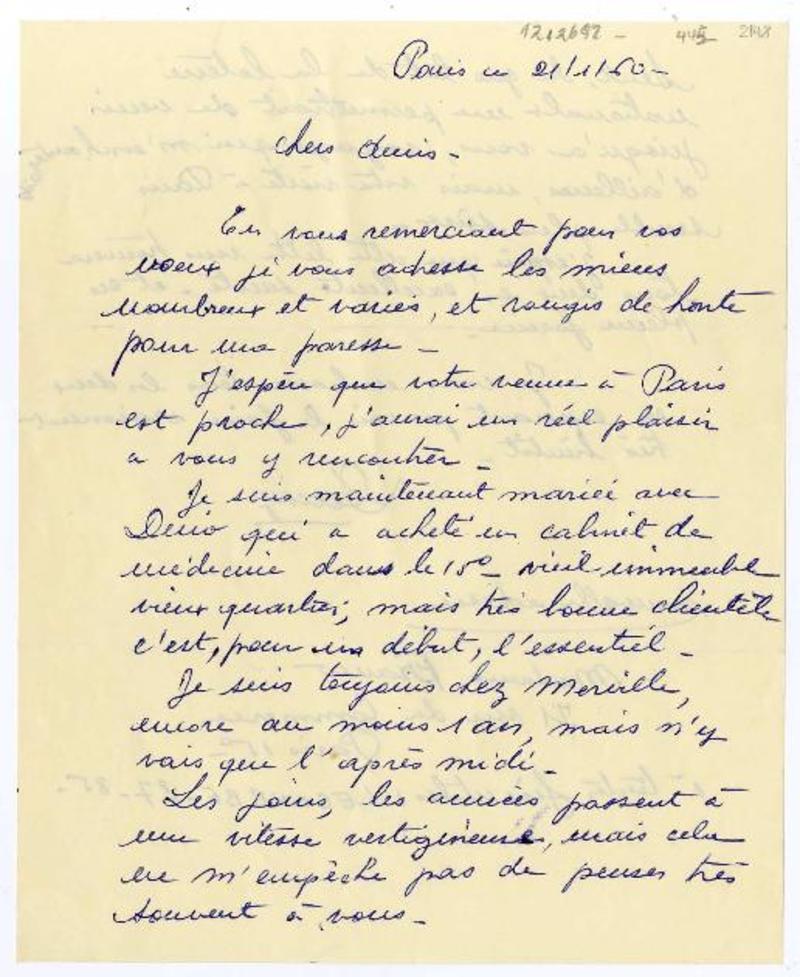 1212692 - 445 2148
Paris ce 21/1/60-
Chers Amis-
En vous remerciant pour vos
voeux je vous adresse les miens
nombreux et variés, et rougis de honte
pour ma paresse -
J'espère que votre venue à Paris
est proche, j'aurai un réel plaisir
a vous y rencontrer -
Je suis maintenant mariée avec
qui a acheté un cabinet de
médecine dans le 15e - vieil immeuble
vieux quartier, mais très bonne clientèle
c'est, pour un début, l'essentiel -
Je suis toujours chez Merville,
encore au moins 1 an, mais n'y
vais que l'après midi -
Les jours, les années passent à
une vitesse vertigineuse, mais cela
ne m'empêche pas de penser très
souvent à vous -